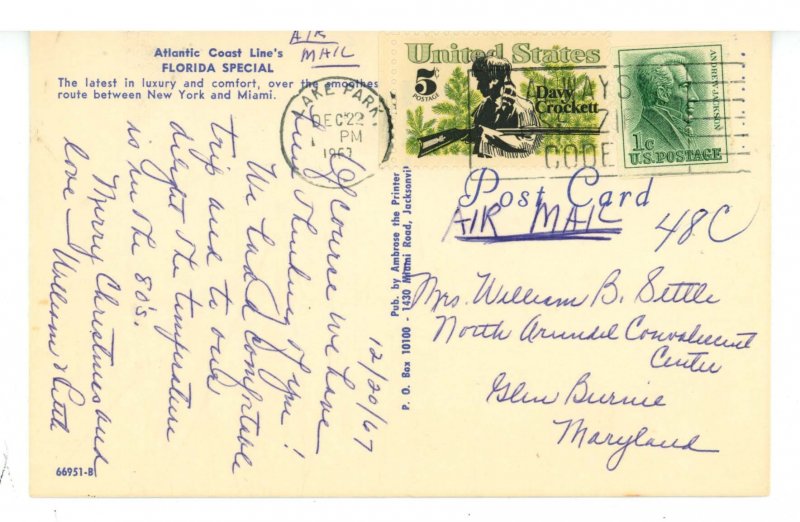 Atlantic Coast Line's
FLORIDA SPECIAL
The latest in luxury and comfort, over the smoothest
route between New York and Miami.
AIR
MAIL
LAKE PARK,
DEC 22
PM
1967
United States
5c
POSTAGE
Davy
Crockett
ANDREW JACKSON
1c
U.S. POSTAGE
ALWAYS
ZIP
CODE
Post Card
AIR MAIL
48C
12/20/67
Of course we have
been thinking of you!
We had a comfortable
trip and to our
delight the temperature
is in the 80's.
Merry Christmas and
love — William & Ruth
Pub. by Ambrose the Printer
P. O. Box 10100 - 1430 Miami Road, Jacksonvil
Mrs. William B. Settle
North Arundel Convalescent
Center
Glen Burnie
Maryland
66951-B